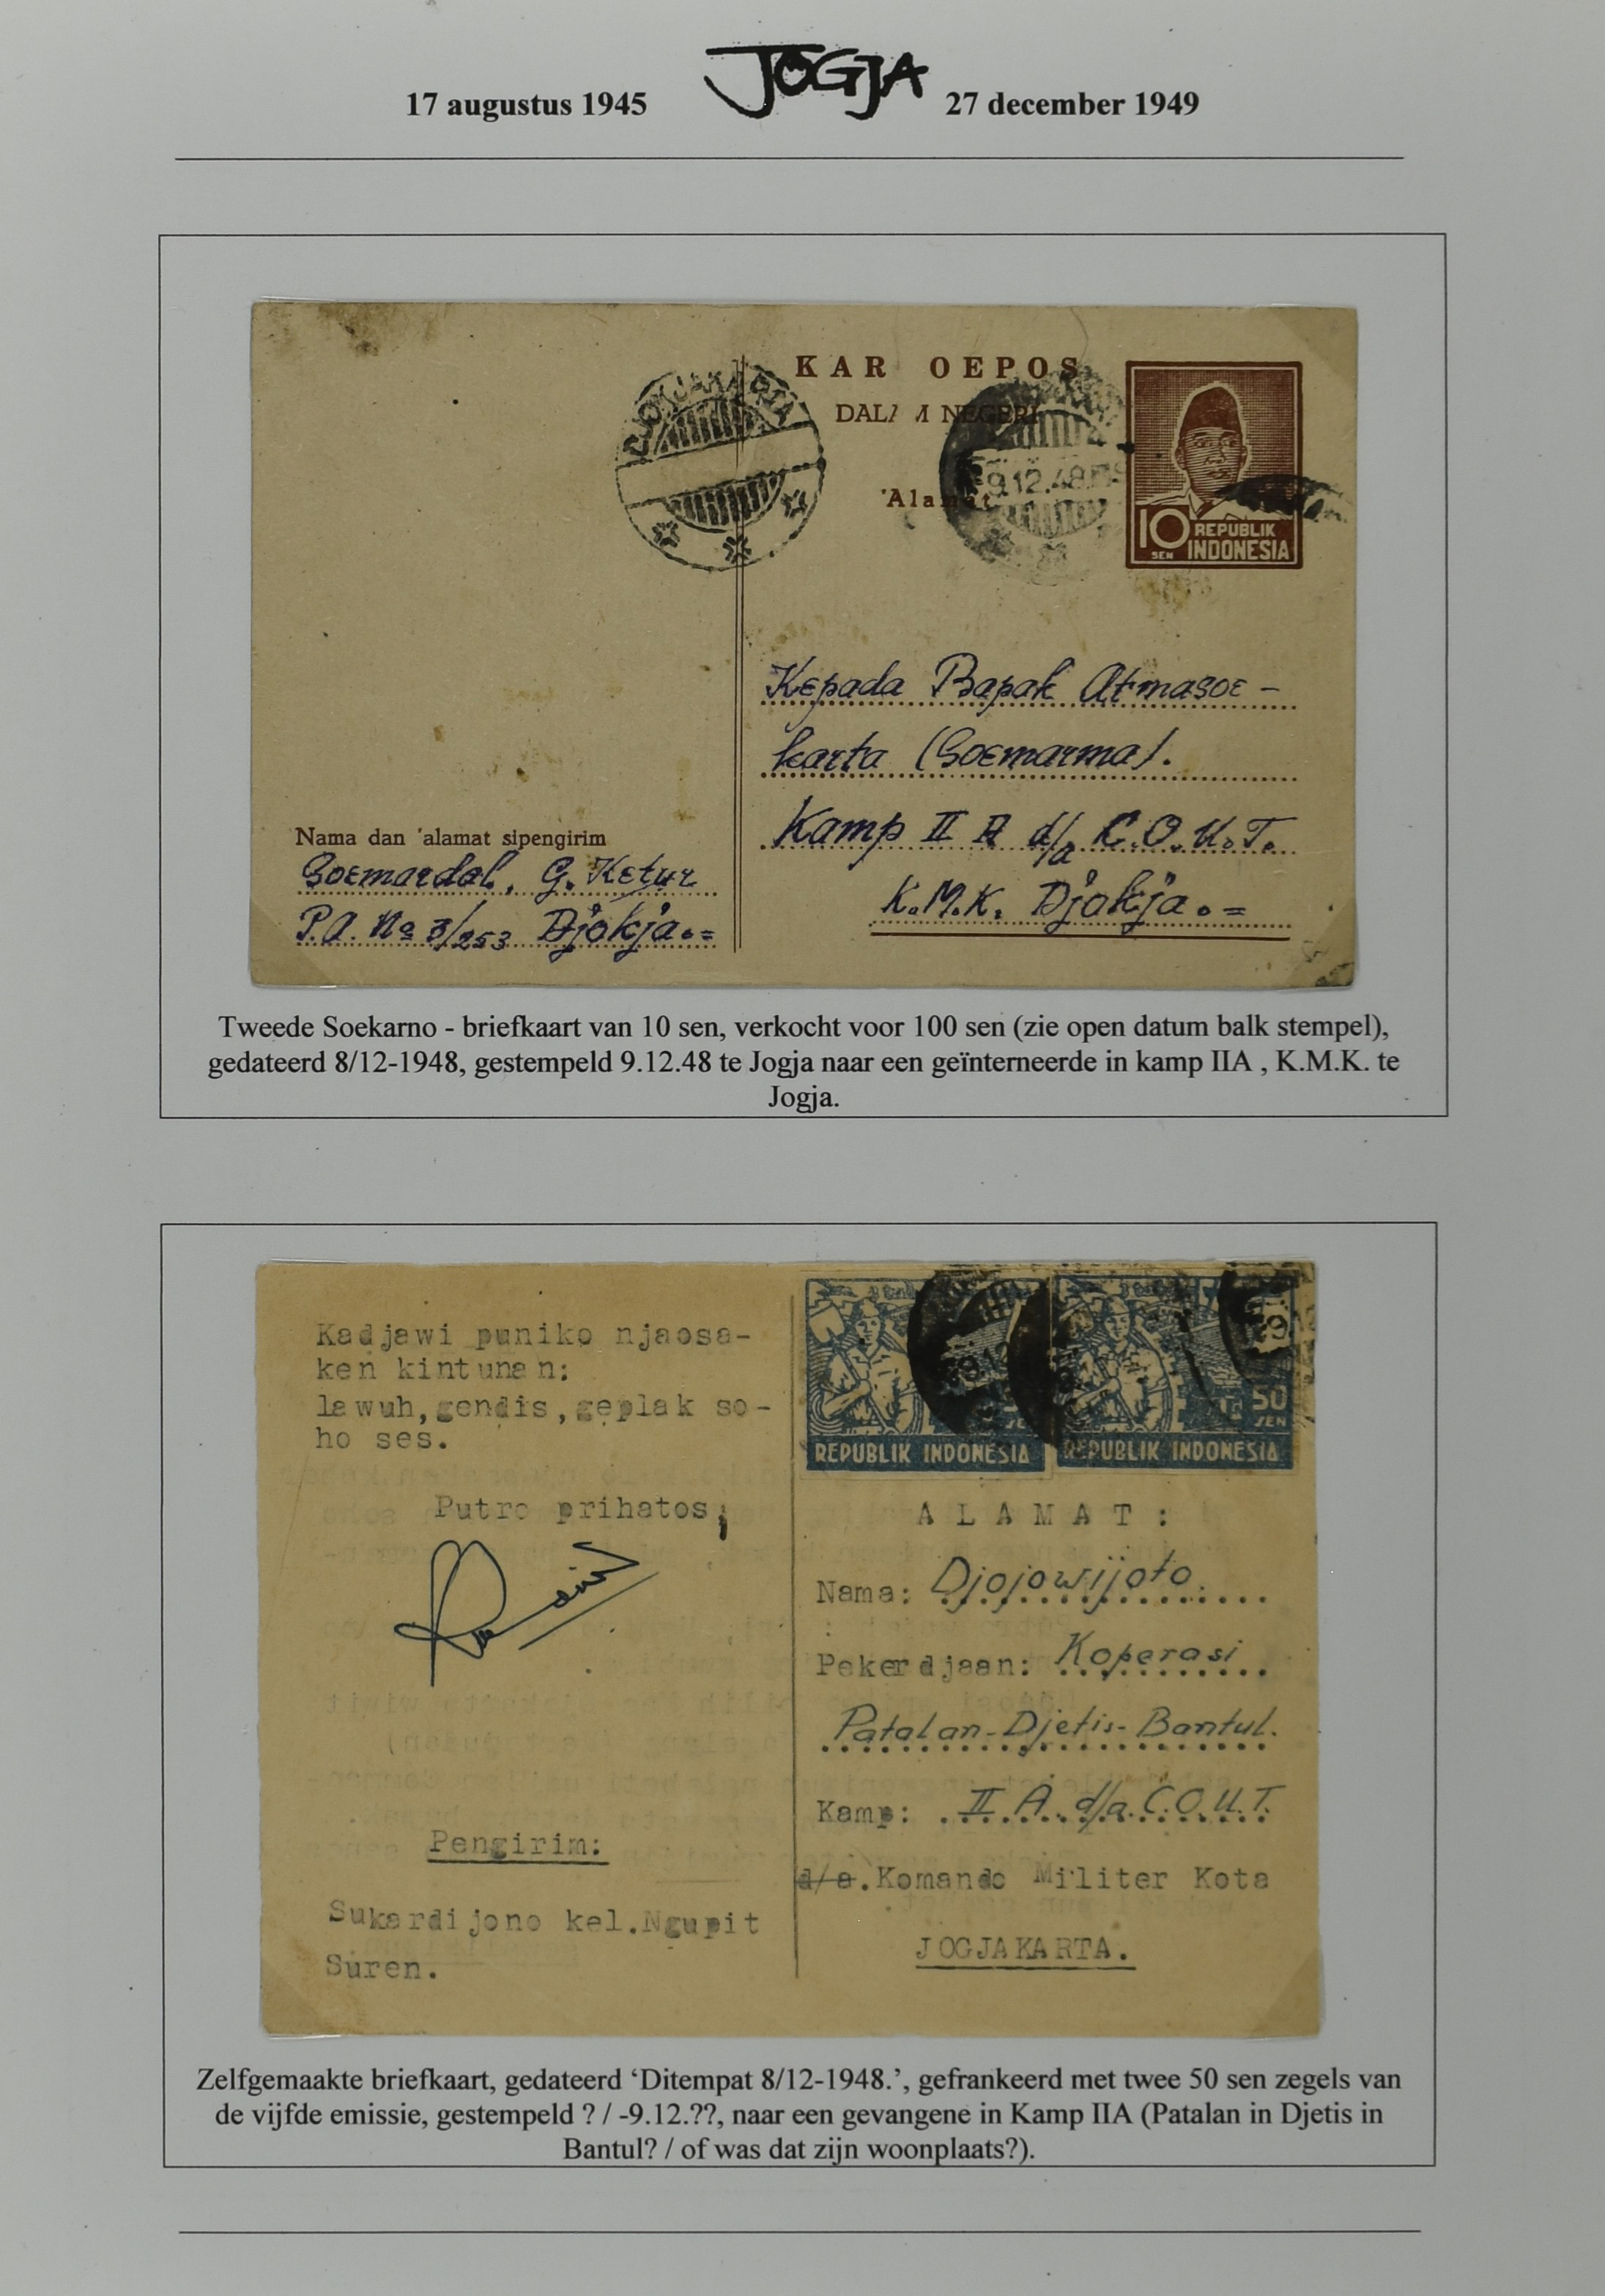 17 augustus 1945 JOGJA 27 december 1949
KAR OEPOS
DALA M NEGERI
'Alamat
DJOKJAKARTA
9.12.48
10 SEN REPUBLIK INDONESIA
Kepada Bapak Atmasoe-
karta (Soemarma).
Kamp II A d/a C.O.U.T.
K.M.K. Djokja.=
Nama dan 'alamat sipengirim
Soemardal, G. Ketur
P.A. No 3/253 Djokja.=
Tweede Soekarno - briefkaart van 10 sen, verkocht voor 100 sen (zie open datum balk stempel),
gedateerd 8/12-1948, gestempeld 9.12.48 te Jogja naar een geïnterneerde in kamp IIA , K.M.K. te
Jogja.
Kadjawi puniko njaosa-
ken kintunan:
lawuh,gendis,geplak so-
ho ses.
Putro prihatos;
Pengirim:
Sukardijono kel.Ngupit
Suren.
50 SEN
REPUBLIK INDONESIA REPUBLIK INDONESIA
ALAMAT:
Nama: Djojowijoto.
Pekerdjaan: Koperasi
Patalan-Djetis-Bantul.
Kamp: II A. d/a. C.O.U.T.
d/a.Komando Militer Kota
JOGJAKARTA.
Zelfgemaakte briefkaart, gedateerd ‘Ditempat 8/12-1948.’, gefrankeerd met twee 50 sen zegels van
de vijfde emissie, gestempeld ? / -9.12.??, naar een gevangene in Kamp IIA (Patalan in Djetis in
Bantul? / of was dat zijn woonplaats?).